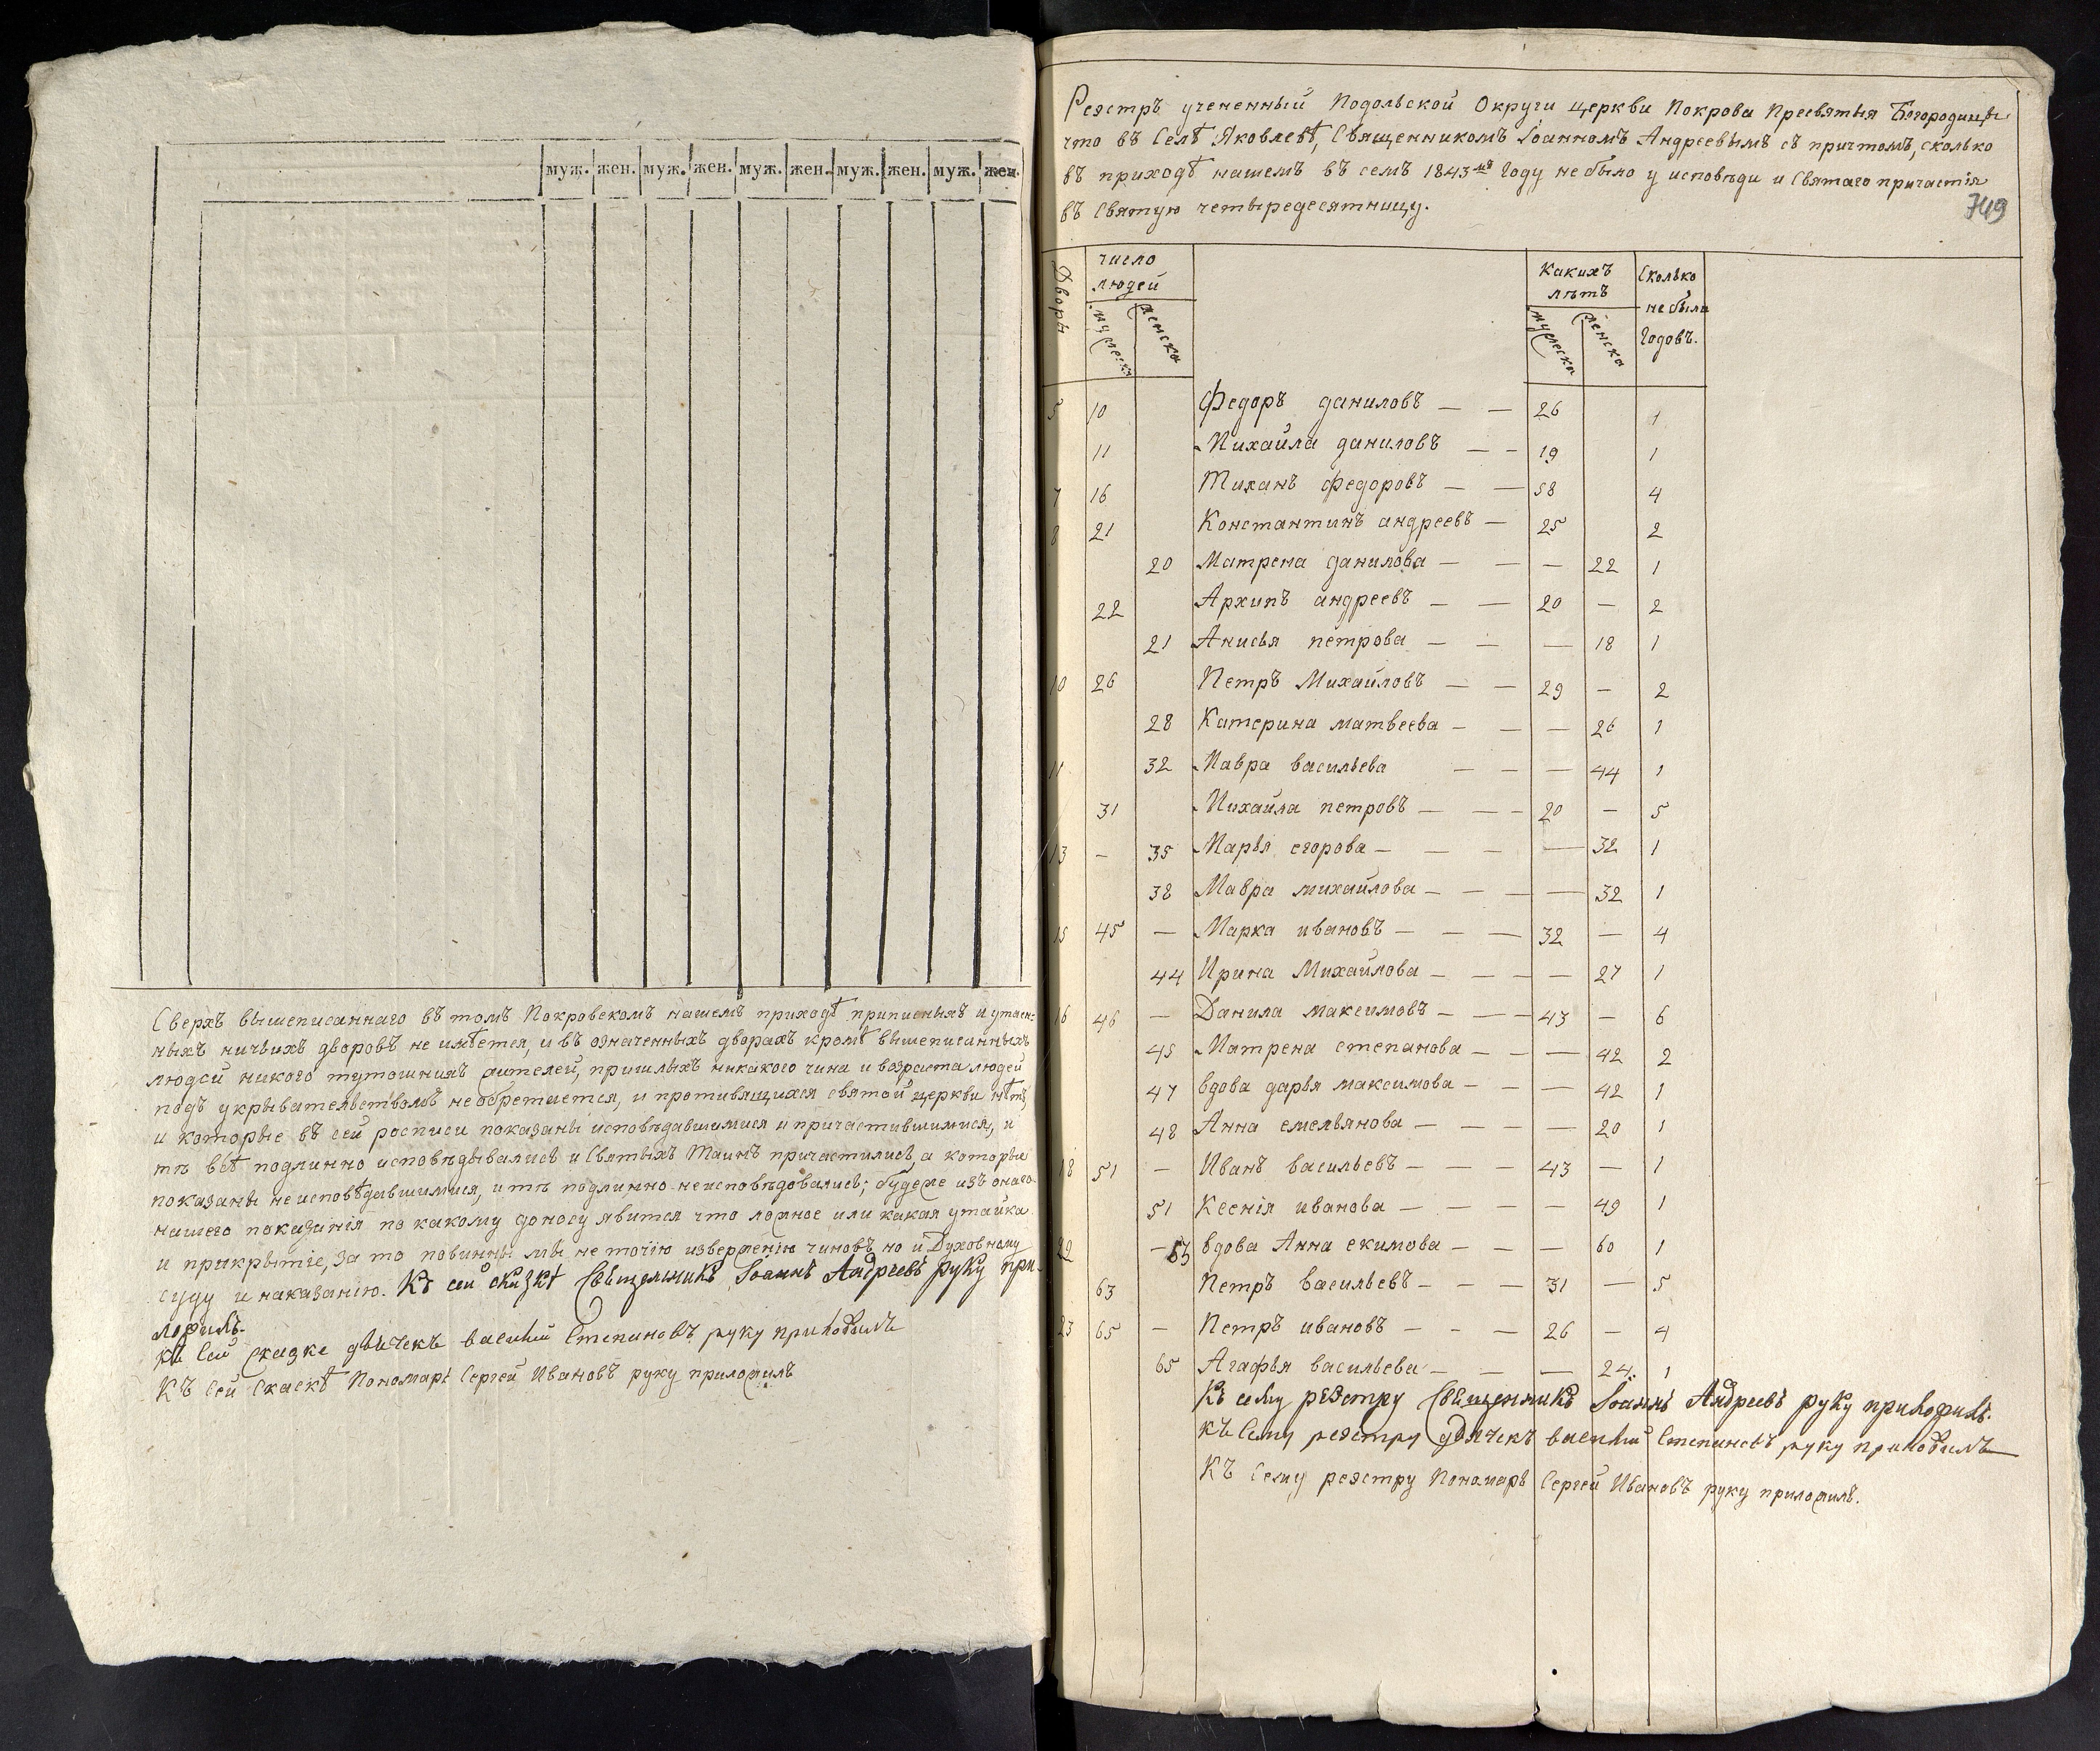 муж. жен. муж. жен. муж. жен. муж. жен. муж. жен.
Сверхъ вышеписаннаго въ томъ Покровскомъ нашемъ приходѣ приписныхъ и утаен-
ныхъ ничьихъ дворовъ не имѣется, и въ означенныхъ дворахъ кромѣ вышеписанныхъ
людей никого тутошнихъ жителей, пришлыхъ никакого чина и возраста людей
подъ укрывательствомъ не обретается, и противящихся святой церкви нѣтъ,
и которые въ сей росписи показаны исповѣдавшимися и причастившимися, и
тѣ всѣ подлинно исповѣдывались и Святыхъ Таинъ причастились, а которые
показаны не исповѣдавшимися, и тѣ подлинно неисповѣдовались; будеже изъ онаго
нашего показанія по какому доносу явится что ложное или какая утайка
и прикрытіе, за то повинны мы не точію изверженію чиновъ но и Духовному
суду и наказанію. Къ сей скаскѣ Священникъ Іоаннъ Андреевъ руку при-
ложилъ.
къ Сей скаске дьячекъ василій Степановъ руку приложилъ
Къ Сей Скаскѣ Пономарь Сергей Ивановъ руку приложилъ
Реэстръ учененный Подольской Округи церкви Покрова Пресвятыя Богородицы
что въ Селѣ Яковлевѣ, Священникомъ Іоанномъ Андреевымъ съ причтомъ, сколько
въ приходѣ нашемъ въ семъ 1843мъ Году не было у исповѣди и Святаго причастія
въ Святую четыредесятницу.
749
Дворы число людей Какихъ лѣтъ Сколько не были Годовъ.
мужеска женска мужеска женска
5 10 Федоръ даниловъ — — 26 1
11 Михайла даниловъ — — 19 1
7 16 Тиханъ федоровъ — — 58 4
8 21 Константинъ андреевъ — 25 2
20 Матрена данилова — — — 22 1
22 Архипъ андреевъ — — 20 — 2
21 Анисья петрова — — — 18 1
10 26 Петръ Михайловъ — — 29 — 2
28 Катерина матвеева — — — 26 1
11 32 Мавра васильева — — — 44 1
31 Михайла петровъ — — — 20 — 5
13 — 35 Марья егорова — — — — 32 1
38 Мавра михайлова — — — — 32 1
15 45 — Марка ивановъ — — — 32 — 4
44 Ирина Михайлова — — — — 27 1
16 46 — Данила максимовъ — — — 43 — 6
45 Матрена степанова — — — 42 2
47 вдова дарья максимова — — — 42 1
48 Анна емельянова — — — — 20 1
18 51 — Иванъ васильевъ — — — 43 — 1
51 Ксенія иванова — — — — 49 1
22 — 53 вдова Анна екимова — — — 60 1
63 Петръ васильевъ — — — 31 — 5
23 65 — Петръ ивановъ — — — 26 — 4
65 Агафья васильева — — — 24. 1
Къ сему реэстру Священникъ Іоаннъ Андреевъ руку приложилъ.
къ Сему реэстру дьячекъ василій Степановъ руку приложилъ
Къ Сему реэстру Пономарь Сергей Ивановъ руку приложилъ.